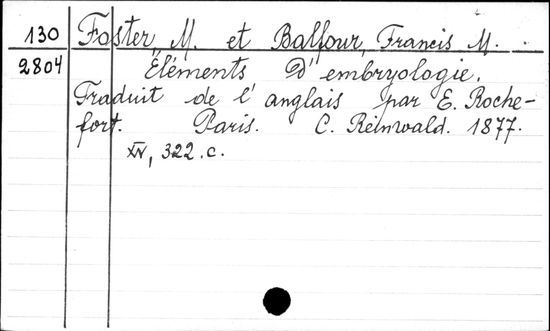 130 Foster, M. et Balfour, Francis M.
2804 Éléments D'embryologie.
Traduit de l'anglais par E. Roche-
fort. Paris. C. Reinwald. 1877.
XIV, 322.c.